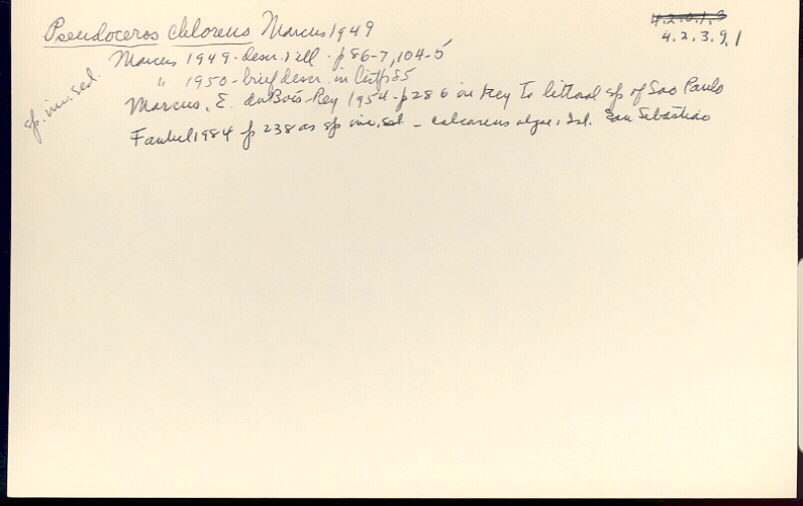 Pseudoceros chloreus Marcus 1949
4.2.0.1.3
4.2.3.9.1
Marcus 1949 - descr. & ill. - p 86-7, 104-5
" 1950 - brief descr. in list p 85
sp. inc. sed.
Marcus, E. du Bois-Rey 1954 - p 286 in key to littoral sp of Sao Paulo
Faubel 1984 p 238 as sp inc. sed. - calcareus algae, Isl. San Sebastiao